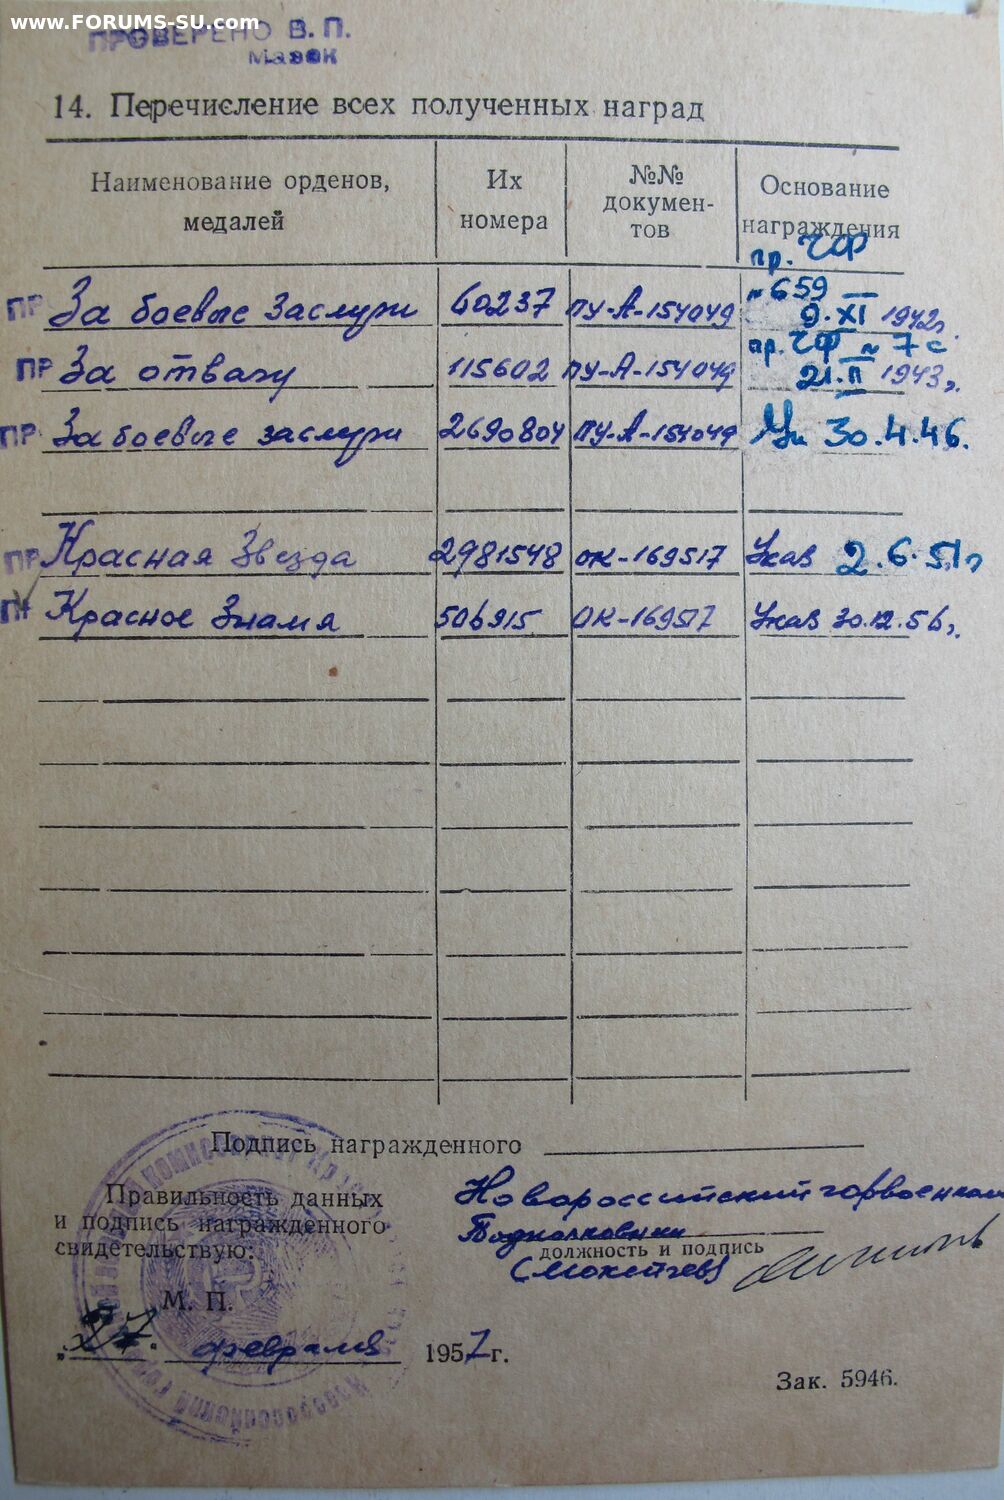 www.FORUMS-SU.com
ПРОВЕРЕНО В. П.
Мазок
14. Перечисление всех полученных наград
Наименование орденов, медалей
Их номера
№№ докумен-тов
Основание награждения
ПР За боевые заслуги 60237 ПУ-А-154049 пр. ЧФ № 659 9.XI 1942г.
ПР За отвагу 115602 ПУ-А-154049 пр. ЧФ № 7с 21.II 1943г.
ПР За боевые заслуги 2690804 ПУ-А-154049 30.4.46.
ПР Красная Звезда 2981548 ОК-169517 Указ 2.6.51г
ПР Красное Знамя 506915 ОК-169517 Указ 30.12.56г.
Подпись награжденного
Правильность данных
и подпись награжденного
свидетельствую:
Новороссийский горвоенком
Подполковник
должность и подпись
М. П.
„27" февраля 1957г.
Зак. 5946.